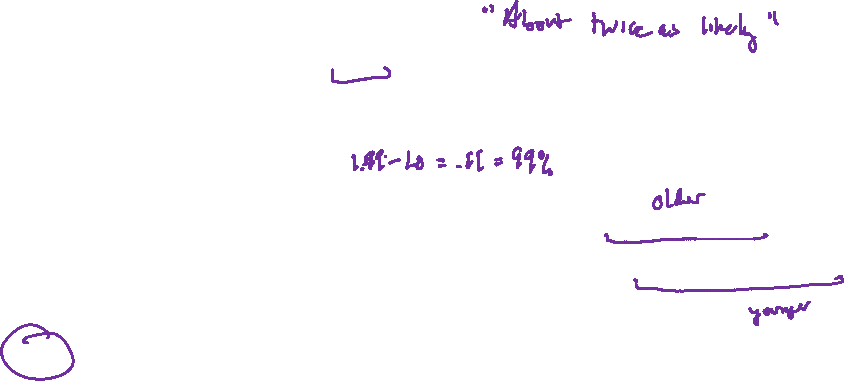 "About twice as likely"
1.99 - 1.0 = .99 = 99%
older
younger